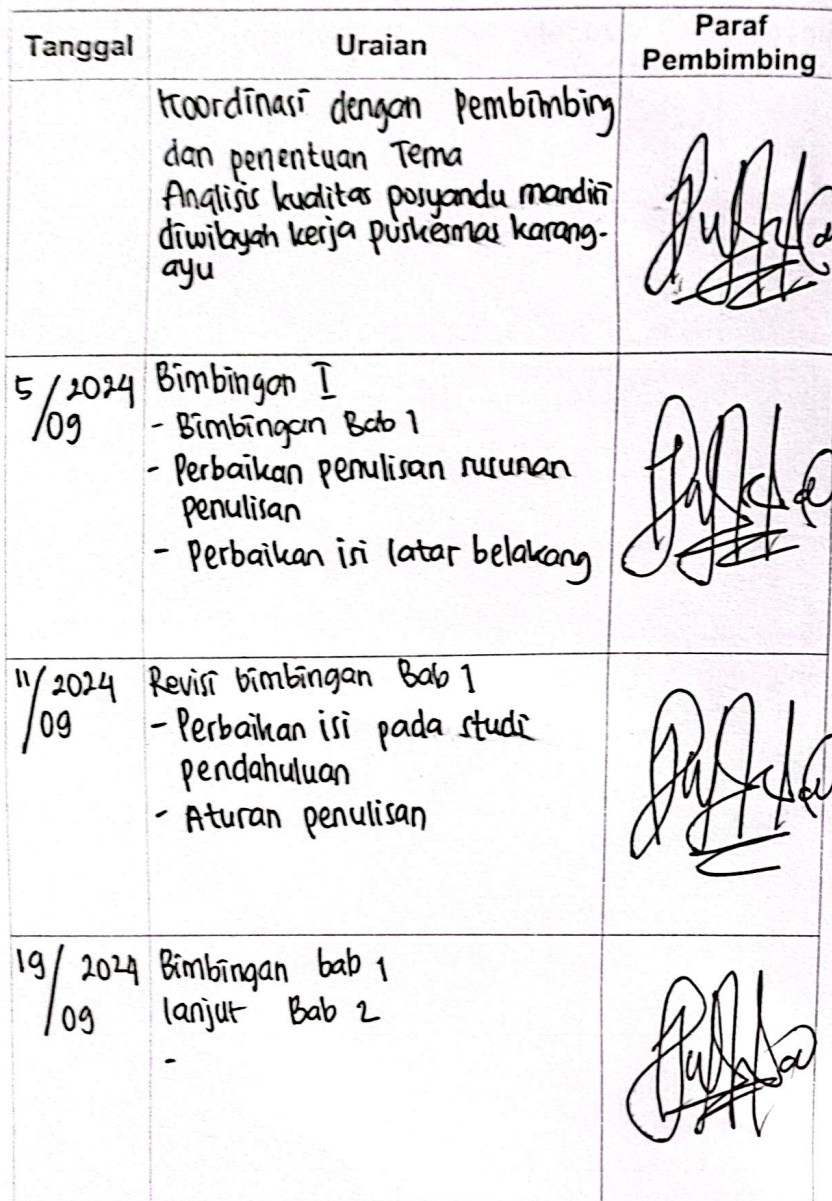 Tanggal Uraian Paraf Pembimbing
Koordinasi dengan Pembimbing
dan penentuan Tema
Analisis kualitas posyandu mandiri
diwilayah kerja puskesmas karang-
ayu
5/2024 Bimbingan I
/09 - Bimbingan Bab 1
- Perbaikan penulisan susunan
penulisan
- Perbaikan isi latar belakang
11/2024 Revisi bimbingan Bab 1
/09 - Perbaikan isi pada studi
pendahuluan
- Aturan penulisan
19/2024 Bimbingan bab 1
/09 lanjut Bab 2
-